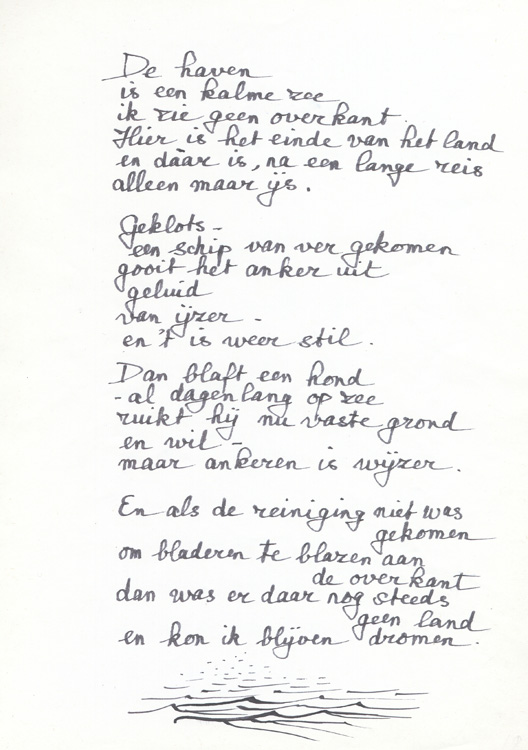 De haven
is een kalme zee
ik zie geen overkant.
Hier is het einde van het land
en dáár is, na een lange reis
alleen maar ijs.
Geklots -
een schip van ver gekomen
gooit het anker uit
geluid
van ijzer -
en 't is weer stil.
Dan blaft een hond
- al dagenlang op zee
ruikt hij nu vaste grond
en wil -
maar ankeren is wijzer.
En als de reiniging niet was
gekomen
om bladeren te blazen aan
de overkant
dan was er daar nog steeds
geen land
en kon ik blijven dromen.